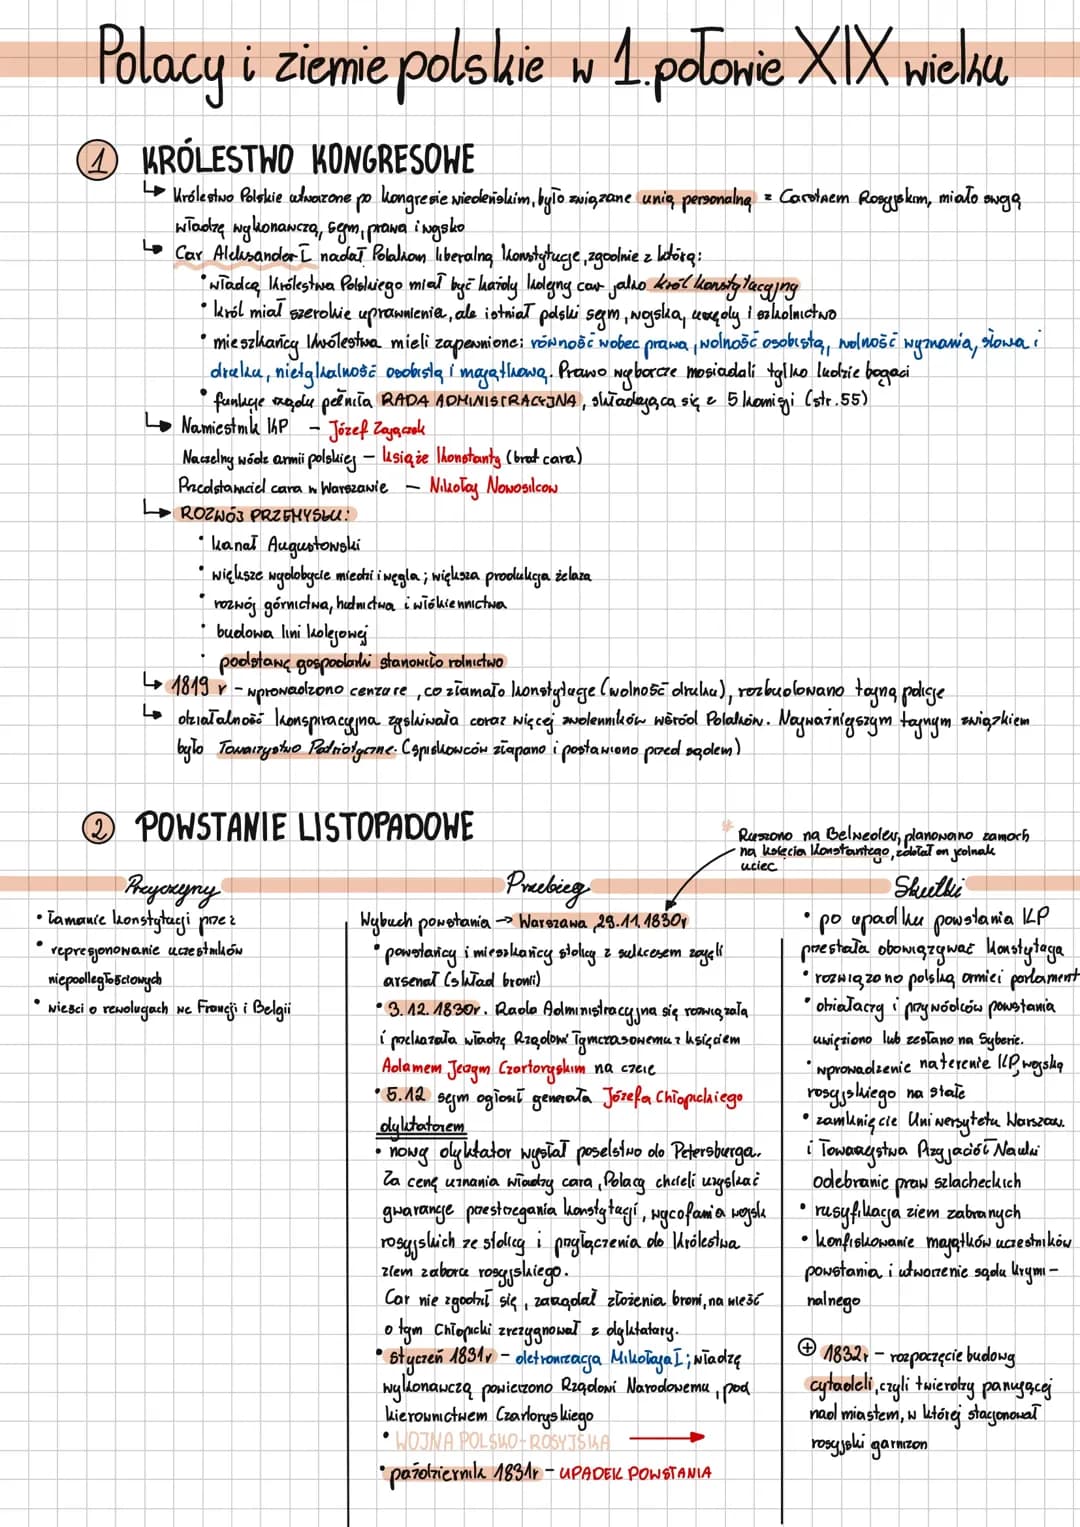 Polacy i ziemie polskie w 1.połowie XIX wieku
1 KRÓLESTWO KONGRESOWE
↳ Królestwo Polskie utworzone po kongresie wiedeńskim, było związane unią personalną z Caratem Rosyjskim, miało swoją
władzę wykonawczą, sejm, prawa i wojsko
↳ Car Aleksander I nadał Polakom liberalną konstytucję, zgodnie z którą:
• władcą Królestwa Polskiego miał być każdy kolejny car jako król konstytucyjny
• król miał szerokie uprawnienia, ale istniał polski sejm, wojska, urzędy i szkolnictwo
• mieszkańcy Królestwa mieli zapewnione: równość wobec prawa, wolność osobistą, wolność wyznania, słowa i
druku, nietykalność osobistą i majątkową. Prawo wyborcze posiadali tylko ludzie bogaci
• funkcje rządu pełniła RADA ADMINISTRACYJNA, składająca się z 5 komisji (str.55)
↳ Namiestnik KP – Józef Zajączek
Naczelny wódz armii polskiej – książe Konstanty (brat cara)
Przedstawiciel cara w Warszawie – Nikołaj Nowosilcow
↳ ROZWÓJ PRZEMYSŁU:
• kanał Augustowski
• większe wydobycie miedzi i węgla; większa produkcja żelaza
• rozwój górnictwa, hutnictwa i włókiennictwa
• budowa lini kolejowej
• podstawę gospodarki stanowiło rolnictwo
↳ 1819 r – wprowadzono cenzurę, co złamało konstytucję (wolność druku), rozbudowano tajną policję
↳ działalność konspiracyjna zyskiwała coraz więcej zwolenników wśród Polaków. Najważniejszym tajnym związkiem
było Towarzystwo Patriotyczne. (spiskowców złapano i postawiono przed sądem)
2 POWSTANIE LISTOPADOWE
* Ruszono na Belweder, planowano zamach
na księcia Konstantego, zdołał on jednak
uciec
Przyczyny
• łamanie konstytucji przez
• represjonowanie uczestników
niepodległościowych
• wieści o rewolucjach we Francji i Belgii
Przebieg
Wybuch powstania → Warszawa 29.11.1830r
• powstańcy i mieszkańcy stolicy z sukcesem zajęli
arsenał (skład broni)
• 3.12.1830r. Rada Administracyjna się rozwiązała
i przekazała władzę Rządowi Tymczasowemu z księciem
Adamem Jerzym Czartoryskim na czele
• 5.12 sejm ogłosił generała Józefa Chłopickiego
dyktatorem
• nowy dyktator wysłał poselstwo do Petersburga.
Za cenę uznania władzy cara, Polacy chcieli uzyskać
gwarancje przestrzegania konstytucji, wycofania wojsk
rosyjskich ze stolicy i przyłączenia do Królestwa
ziem zaboru rosyjskiego.
Car nie zgodził się, zażądał złożenia broni, na wieść
o tym Chłopicki zrezygnował z dyktatury.
• Styczeń 1831r – detronizacja Mikołaja I; władzę
wykonawczą powierzono Rządowi Narodowemu, pod
kierownictwem Czartoryskiego
• WOJNA POLSKO-ROSYJSKA →
• październik 1831r – UPADEK POWSTANIA
Skutki
• po upadku powstania KP
przestała obowiązywać konstytucja
• rozwiązono polską armię i parlament
• działaczy i przywódców powstania
uwięziono lub zesłano na Syberię.
• wprowadzenie na terenie KP, wojska
rosyjskiego na stałe
• zamknięcie Uniwersytetu Warszaw.
i Towarzystwa Przyjaciół Nauki
odebranie praw szlacheckich
• rusyfikacja ziem zabranych
• konfiskowanie majątków uczestników
powstania i utworzenie sądu krymi-
nalnego
⊕ 1832r – rozpoczęcie budowy
cytadeli, czyli twierdzy panującej
nad miastem, w której stacjonował
rosyjski garnizon